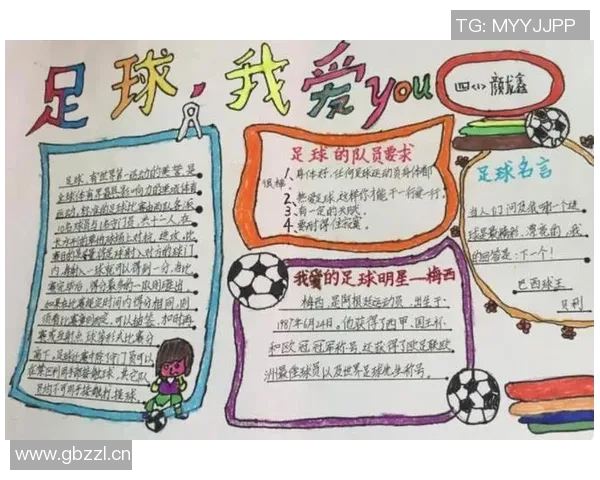 TG: MYYJJPP
足球，我爱you
四〈1〉颜龙鑫
足球，有世界第一运动的美誉，是
全球体育界最具影响力的单项体育
运动，标准的足球比赛由两队各派
10名球员与1名守门员，共十二人，在
长方形的草地球场上对抗，进攻，比
赛目的是尽量将足球射入对方的球门
内，每射入一球就可以得到一分，当比
赛完毕后，得分最多的一队则胜出
如果在比赛规定时间内得分相同，则
须看比赛章则而定，可以抽签，加时再
赛或互射点球等形式比赛分
高下，足球比赛中除了守门员可以
在禁区利用手部接触足球，其它队
员均不可用手接触打足球
足球的队员要求
1、身体好，任何足球运动员身体都
很棒
2、热爱足球，这样你才能干一行爱一行。
3、有一定的天赋
4、要耐得住寂寞
我爱的足球明星—梅西
梅西，是阿根廷运动员，出生于
1987年6月24日。他获得了西甲、国王杯
和欧冠冠军称号，还获得了欧足联欧
洲最佳球员以及世界足球先生称号。
足球名言
当人们问及我哪一个进
球是最精彩，漂亮的，我
的回答是：下一个！
巴西球王
贝利
www.gbzzl.cn